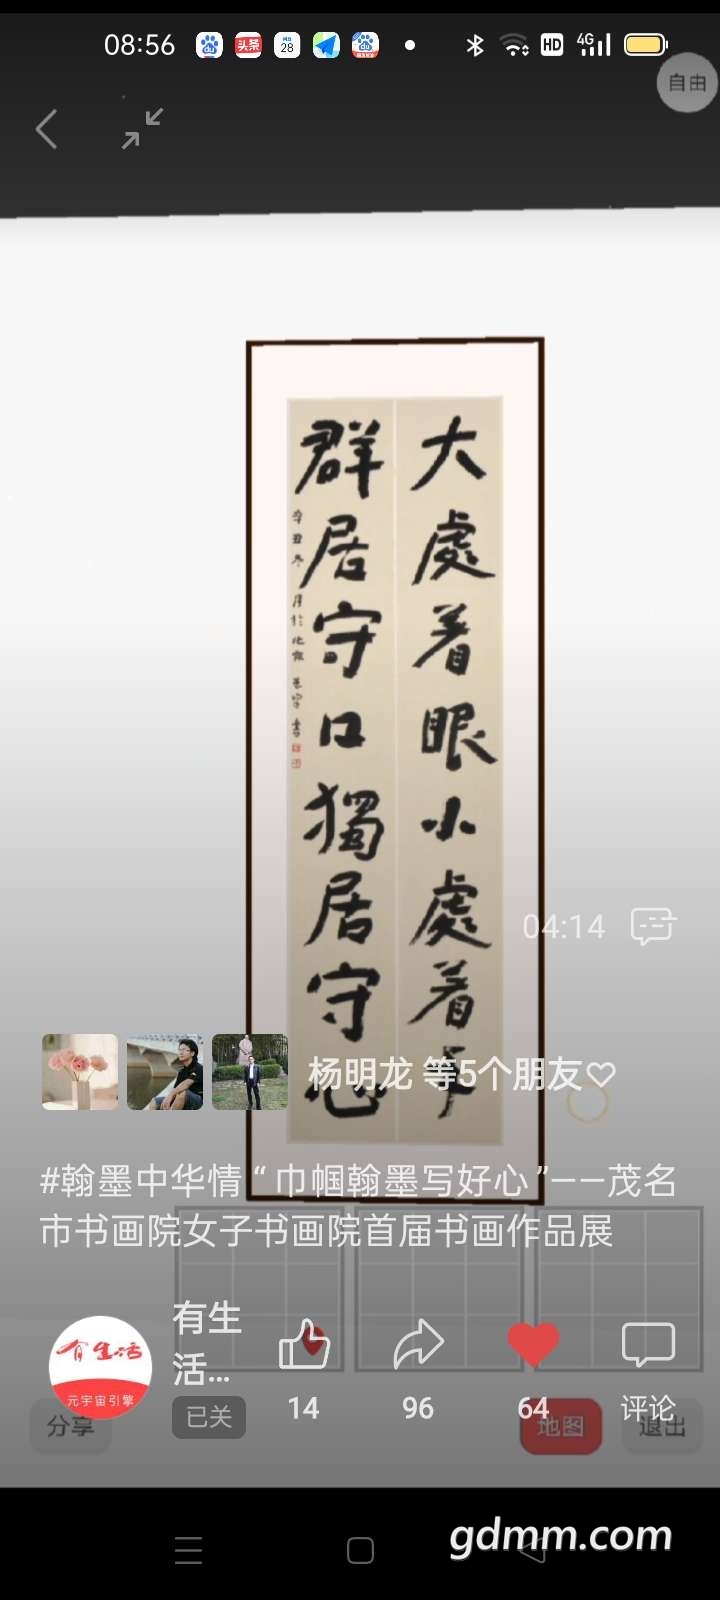 08:56
头条
28
HD
4G
自由
大處着眼小處着手
群居守口獨居守心
辛丑冬月於北京
書
04:14
杨明龙 等5个朋友♡
#翰墨中华情“巾帼翰墨写好心”——茂名
市书画院女子书画院首届书画作品展
有生活
元宇宙引擎
有生
活...
已关
14
96
64
评论
分享
地图
退出
gdmm.com